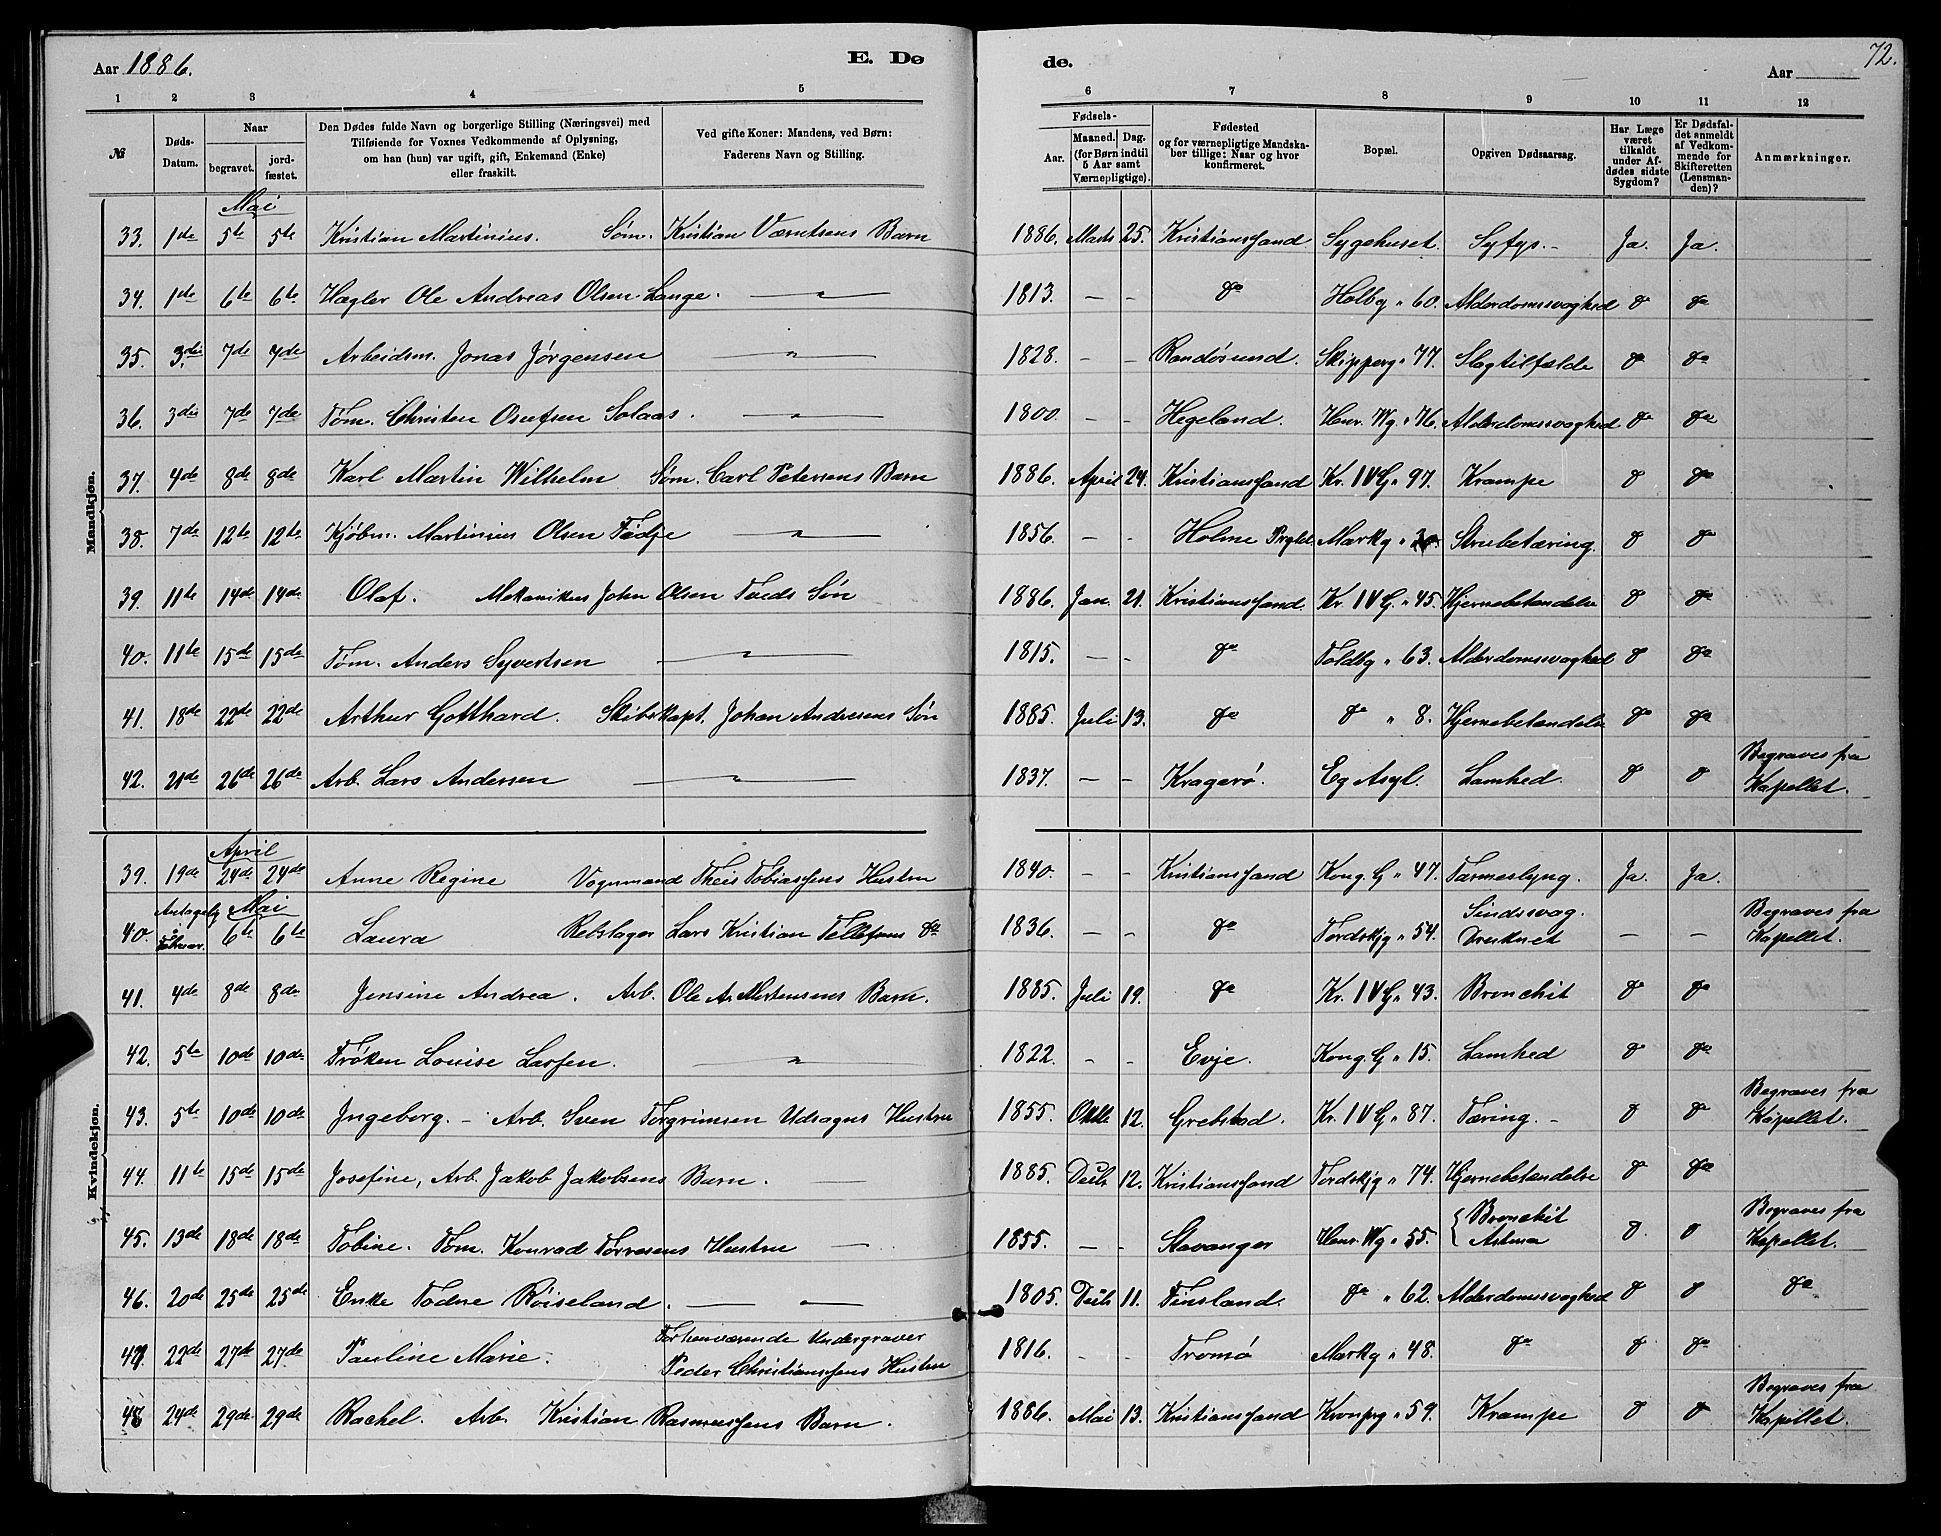 Aar 1886. E. Dø de. Aar 72.
1 2 3 4 5 6 7 8 9 10 11 12
№ Døds-Datum. Naar begravet. jordfæstet. Den Dødes fulde Navn og borgerlige Stilling (Næringsvei) med Tilføiende for Voxnes Vedkommende af Oplysning, om han (hun) var ugift, gift, Enkemand (Enke) eller fraskilt. Ved gifte Koner: Mandens, ved Børn: Faderens Navn og Stilling. Fødsels- Aar. Maaned. Dag. (for Børn indtil 5 Aar samt Værnepligtige). Fødested og for værnepligtige Mandskaber tillige: Naar og hvor konfirmeret. Bopæl. Opgiven Dødsaarsag. Har Læge været tilkaldt under Afdødes sidste Sygdom? Er Dødsfaldet anmeldt af Vedkommende for Skifteretten (Lensmanden)? Anmærkninger.
Mandkjøn.
Mai
33. 1de 5te 5te Kristian Martinius. Søm. Kristian Værntsens Barn 1886. Marts 25. Kristianssand Sygehuset. Syfys. - Ja. Ja.
34. 1de 6te 6te Hægler Ole Andreas Olsen Lange. — " — 1813. - - do Holbg " 60. Alderdomssvaghed do do
35. 3die 7de 7de Arbeidsm. Jonas Jørgensen — " — 1828. - - Randøsund. Skipperg " 77. Slagtilfælde do do
36. 3die 7de 7de Tøm. Christen Osufsen Solaas. — " — 1800. - - Hegeland. Henr. Wg. " 76. Alderdomssvaghed do do
37. 4de 8de 8de Karl Martin Wilhelm Søm. Carl Petersens Barn 1886. April 24. Kristianssand Kr. IV G. " 97. Krampe do do
38. 7de 12te 12te Kjøbm. Martinius Olsen Tødje — " — 1856. - - Holme Prgld. Markg " 30. Strubetæring. do do
39. 11te 14de 14de Olaf. Mekanikus John Olsen Tveds Søn 1886. Jan. 21. Kristianssand Kr. IV G. " 45. Hjernebetændelse do do
40. 11te 15de 15de Tøm. Anders Syvertsen — " — 1815. - - do Toldbg " 63. Alderdomssvaghed do do
41. 18de 22de 22de Arthur Gotthard. Skibskapt. Johan Andresens Søn 1885. Juli 13. do do " 8. Hjernebetændelse do do
42. 21de 26de 26de Arb. Lars Andersen — " — 1837. - - Kragerø. Eg Asyl. Lamhed. do do Begraves fra Kapellet.
Kvindekjøn.
April
39. 19de 24de 24de Anne Regine Vognmand Theis Tobiassens Hustru 1840. - - Kristianssand Kong. G " 47. Tarmeslyng. Ja. Ja.
Mai
40. Antagelig 6te 6te Laura Rebslager Lars Kristian Tellefsens do 1836. - - do Tordskjg " 54. Sindssvag. Druknet - - Begraves fra Kapellet.
41. 4de 8de 8de Jensine Andrea. Arb. Ole A. Mortensens Barn. 1885. Juli 19. do Kr. IV G " 43. Bronchit do do
42. 5te 10de 10de Frøken Louise Larsen. — " — 1822. - - Evje. Kong. G " 15. Lamhed do do
43. 5te 10de 10de Ingeborg. - Arb. Sven Torgrimsen Udsagns Hustru 1855. Oktb 12. Grebstad. Kr. IV G " 87. Tæring. - do do Begraves fra Kapellet.
44. 11te 15de 15de Josefine, Arb. Jakob Jakobsens Barn. — 1885. Decbr 12. Kristianssand Tordskjg " 74. Hjernebetændelse do do
45. 13de 18de 18de Tobine. Tøm. Konrad Torresens Hustru — 1855. - - Stavanger Henr. Wg " 55. { Bronchit Astma do. do Begraves fra Kapellet.
46. 20de 25de 25de Enke Todne Røiseland. — — 1805. Decbr 11. Finsland. do " 62. Alderdomssvaghed do do do
47. 22de 27de 27de Pauline Marie. Forhenværende Undergraver Peder Christianssens Hustru 1816. - - Tromø Markg " 48. do do do
48 24de 29de 29de Rachel. Arb. Kristian Rasmussens Barn. 1886. Mai 13. Kristianssand Kronprg " 59. Krampe do do Begraves fra Kapellet.